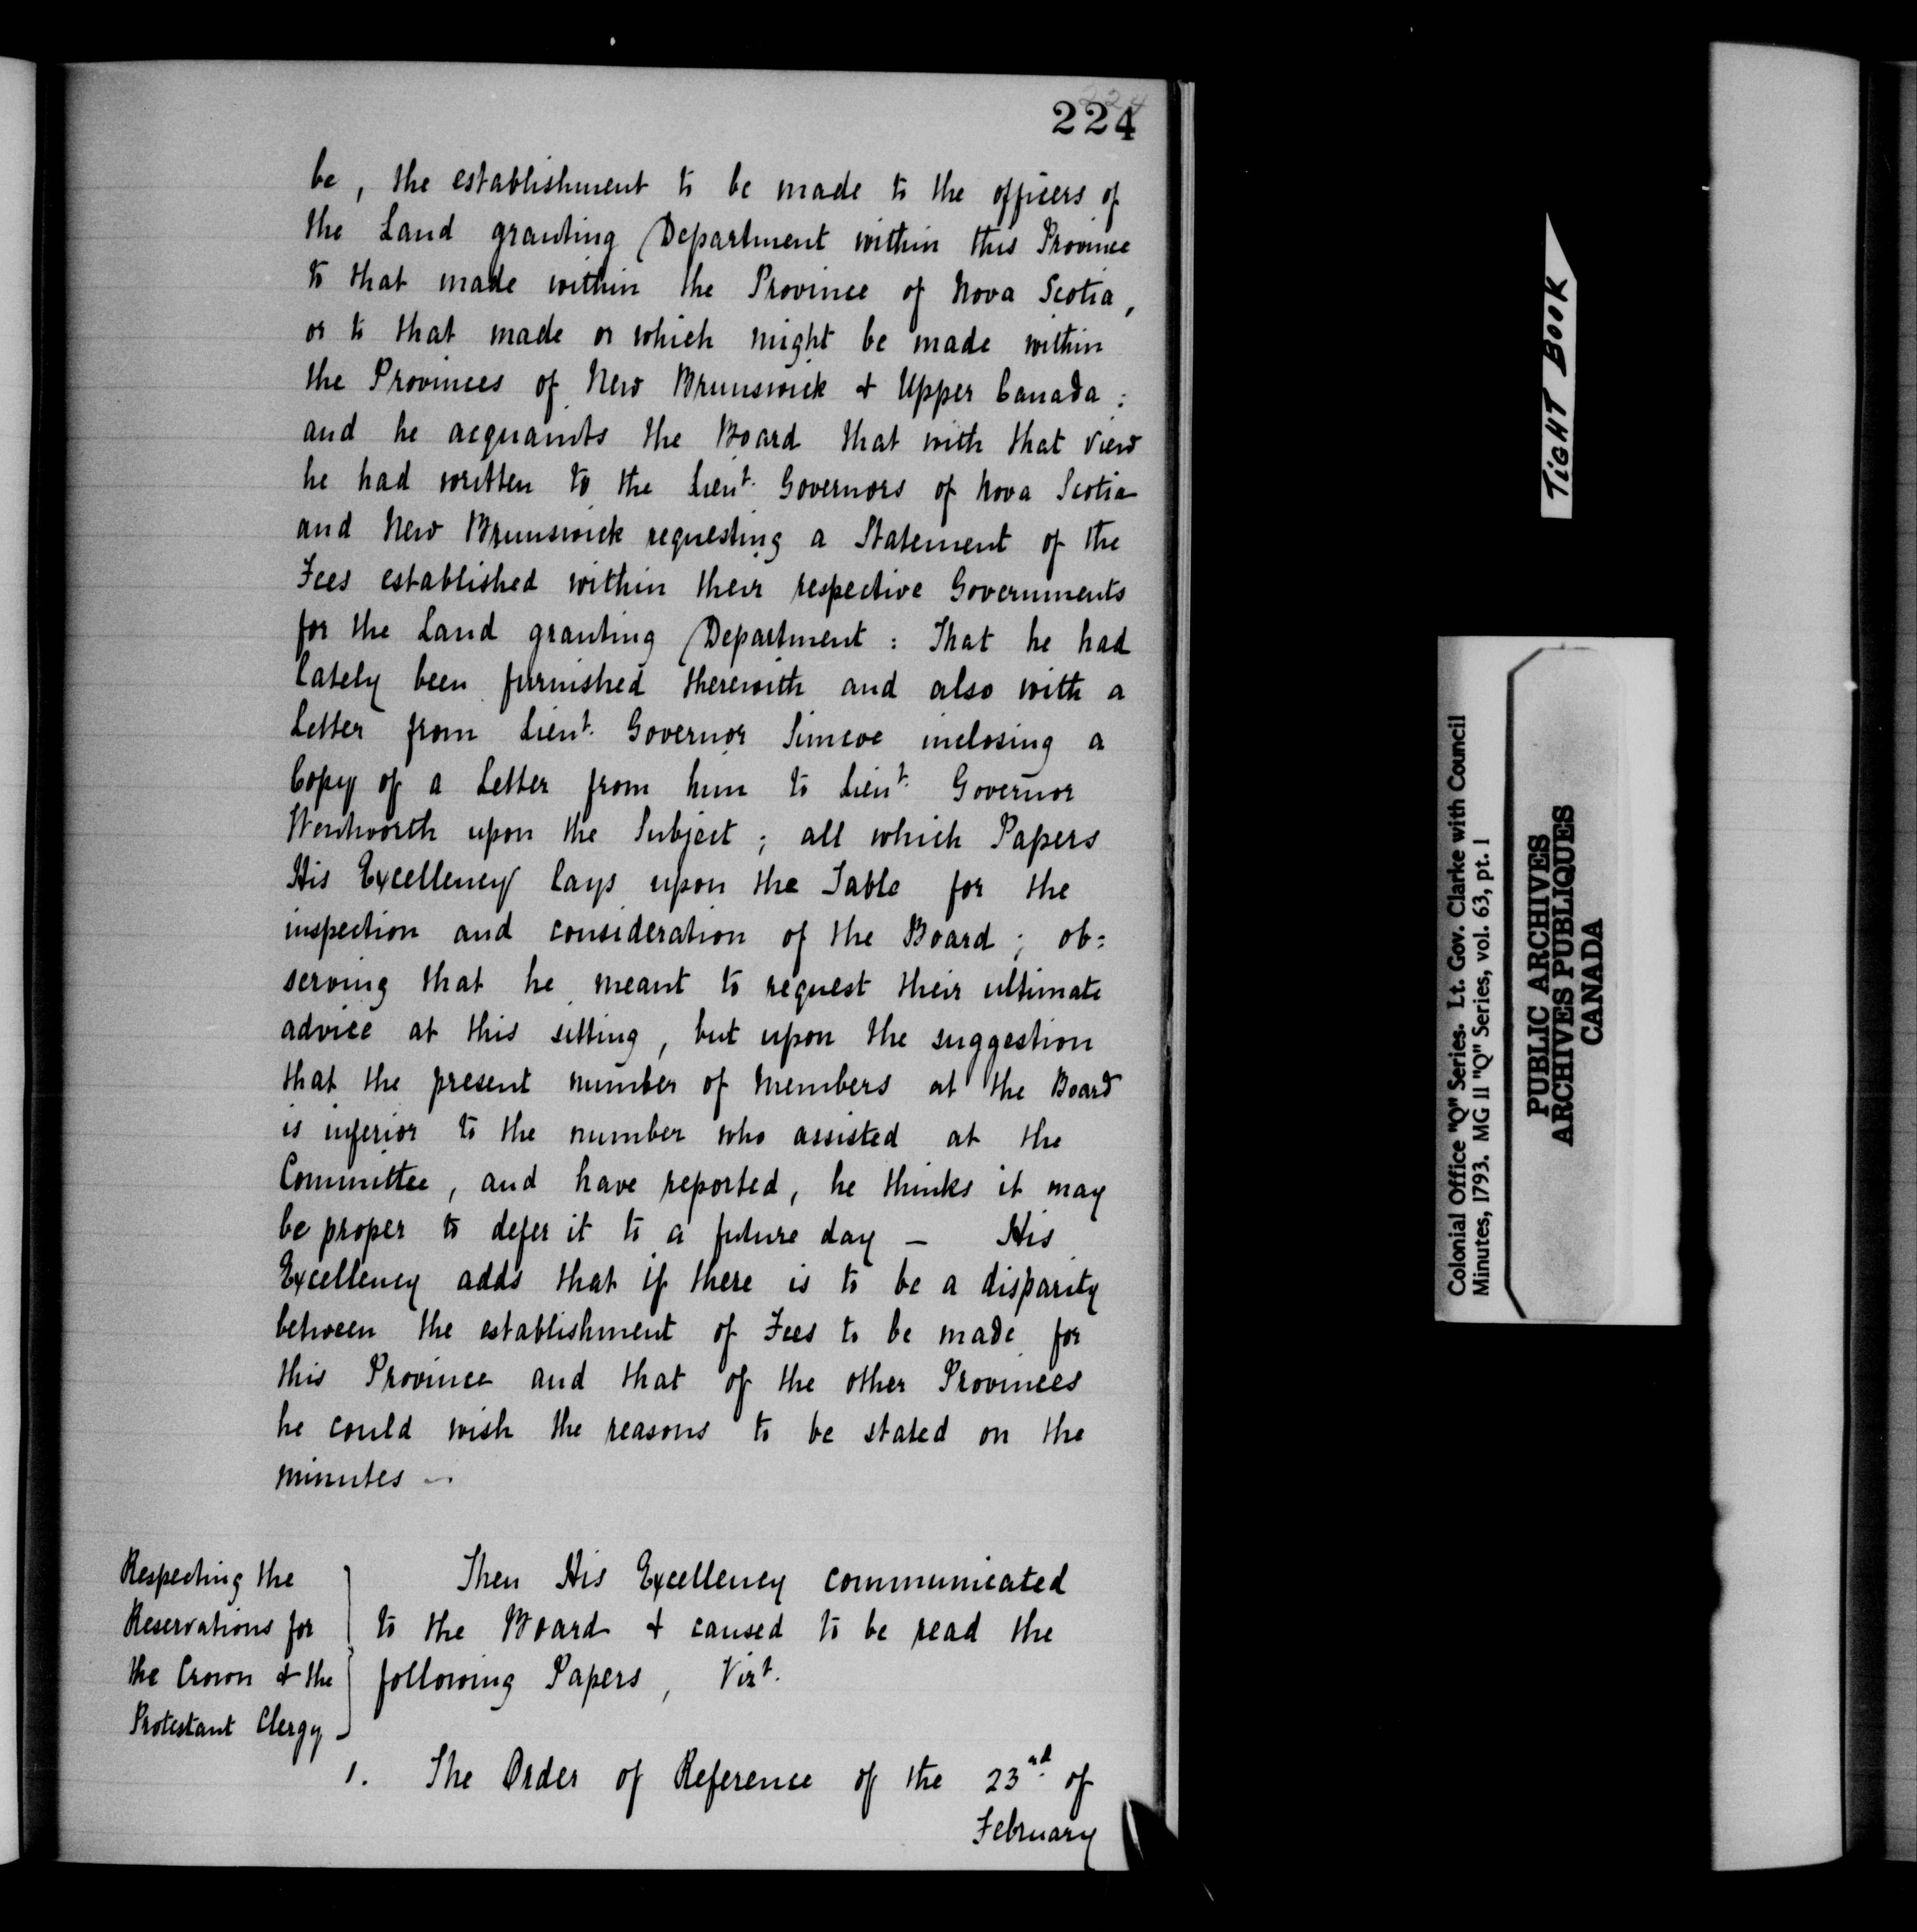 224
224
be, the establishment to be made to the officers of
the Land granting Department within this Province
to that made within the Province of Nova Scotia,
or to that made or which might be made within
the Provinces of New Brunswick & Upper Canada :
and he acquaints the Board that with that view
he had written to the Lieut. Governors of Nova Scotia
and New Brunswick requesting a Statement of the
Fees established within their respective Governments
for the Land granting Department : That he had
lately been furnished therewith and also with a
Letter from Lieut. Governor Simcoe inclosing a
Copy of a Letter from him to Lieut. Governor
Wentworth upon the Subject ; all which Papers
His Excellency lays upon the Table for the
inspection and consideration of the Board ; ob=
serving that he meant to request their ultimate
advice at this sitting, but upon the suggestion
that the present number of Members at the Board
is inferior to the number who assisted at the
Committee, and have reported, he thinks it may
be proper to defer it to a future day — His
Excellency adds that if there is to be a disparity
between the establishment of Fees to be made for
this Province and that of the other Provinces
he could wish the reasons to be stated on the
minutes —
Respecting the
Reservations for
the Crown & the
Protestant Clergy
Then His Excellency communicated
to the Board & caused to be read the
following Papers, Vizt.
1. The Order of Reference of the 23rd. of
February
TIGHT BOOK
Colonial Office "Q" Series. Lt. Gov. Clarke with Council
Minutes, 1793. MG 11 "Q" Series, vol. 63, pt. 1
PUBLIC ARCHIVES
ARCHIVES PUBLIQUES
CANADA